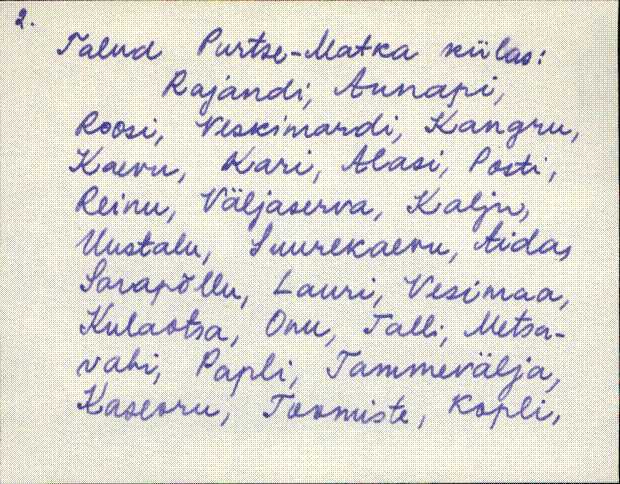 2.
Talud Purtse-Matka külas:
Rajandi, Aunapi,
Roosi, Veskimardi, Kangru,
Kaevu, Kari, Alasi, Posti,
Reinu, Väljaserva, Kalju,
Uustalu, Suurekaevu, Aidas,
Sarapõllu, Lauri, Vesimaa,
Külaotsa, Onu, Talli, Metsa-
vahi, Papli, Tammevälja,
Kaseoru, Toomiste, Kopli,